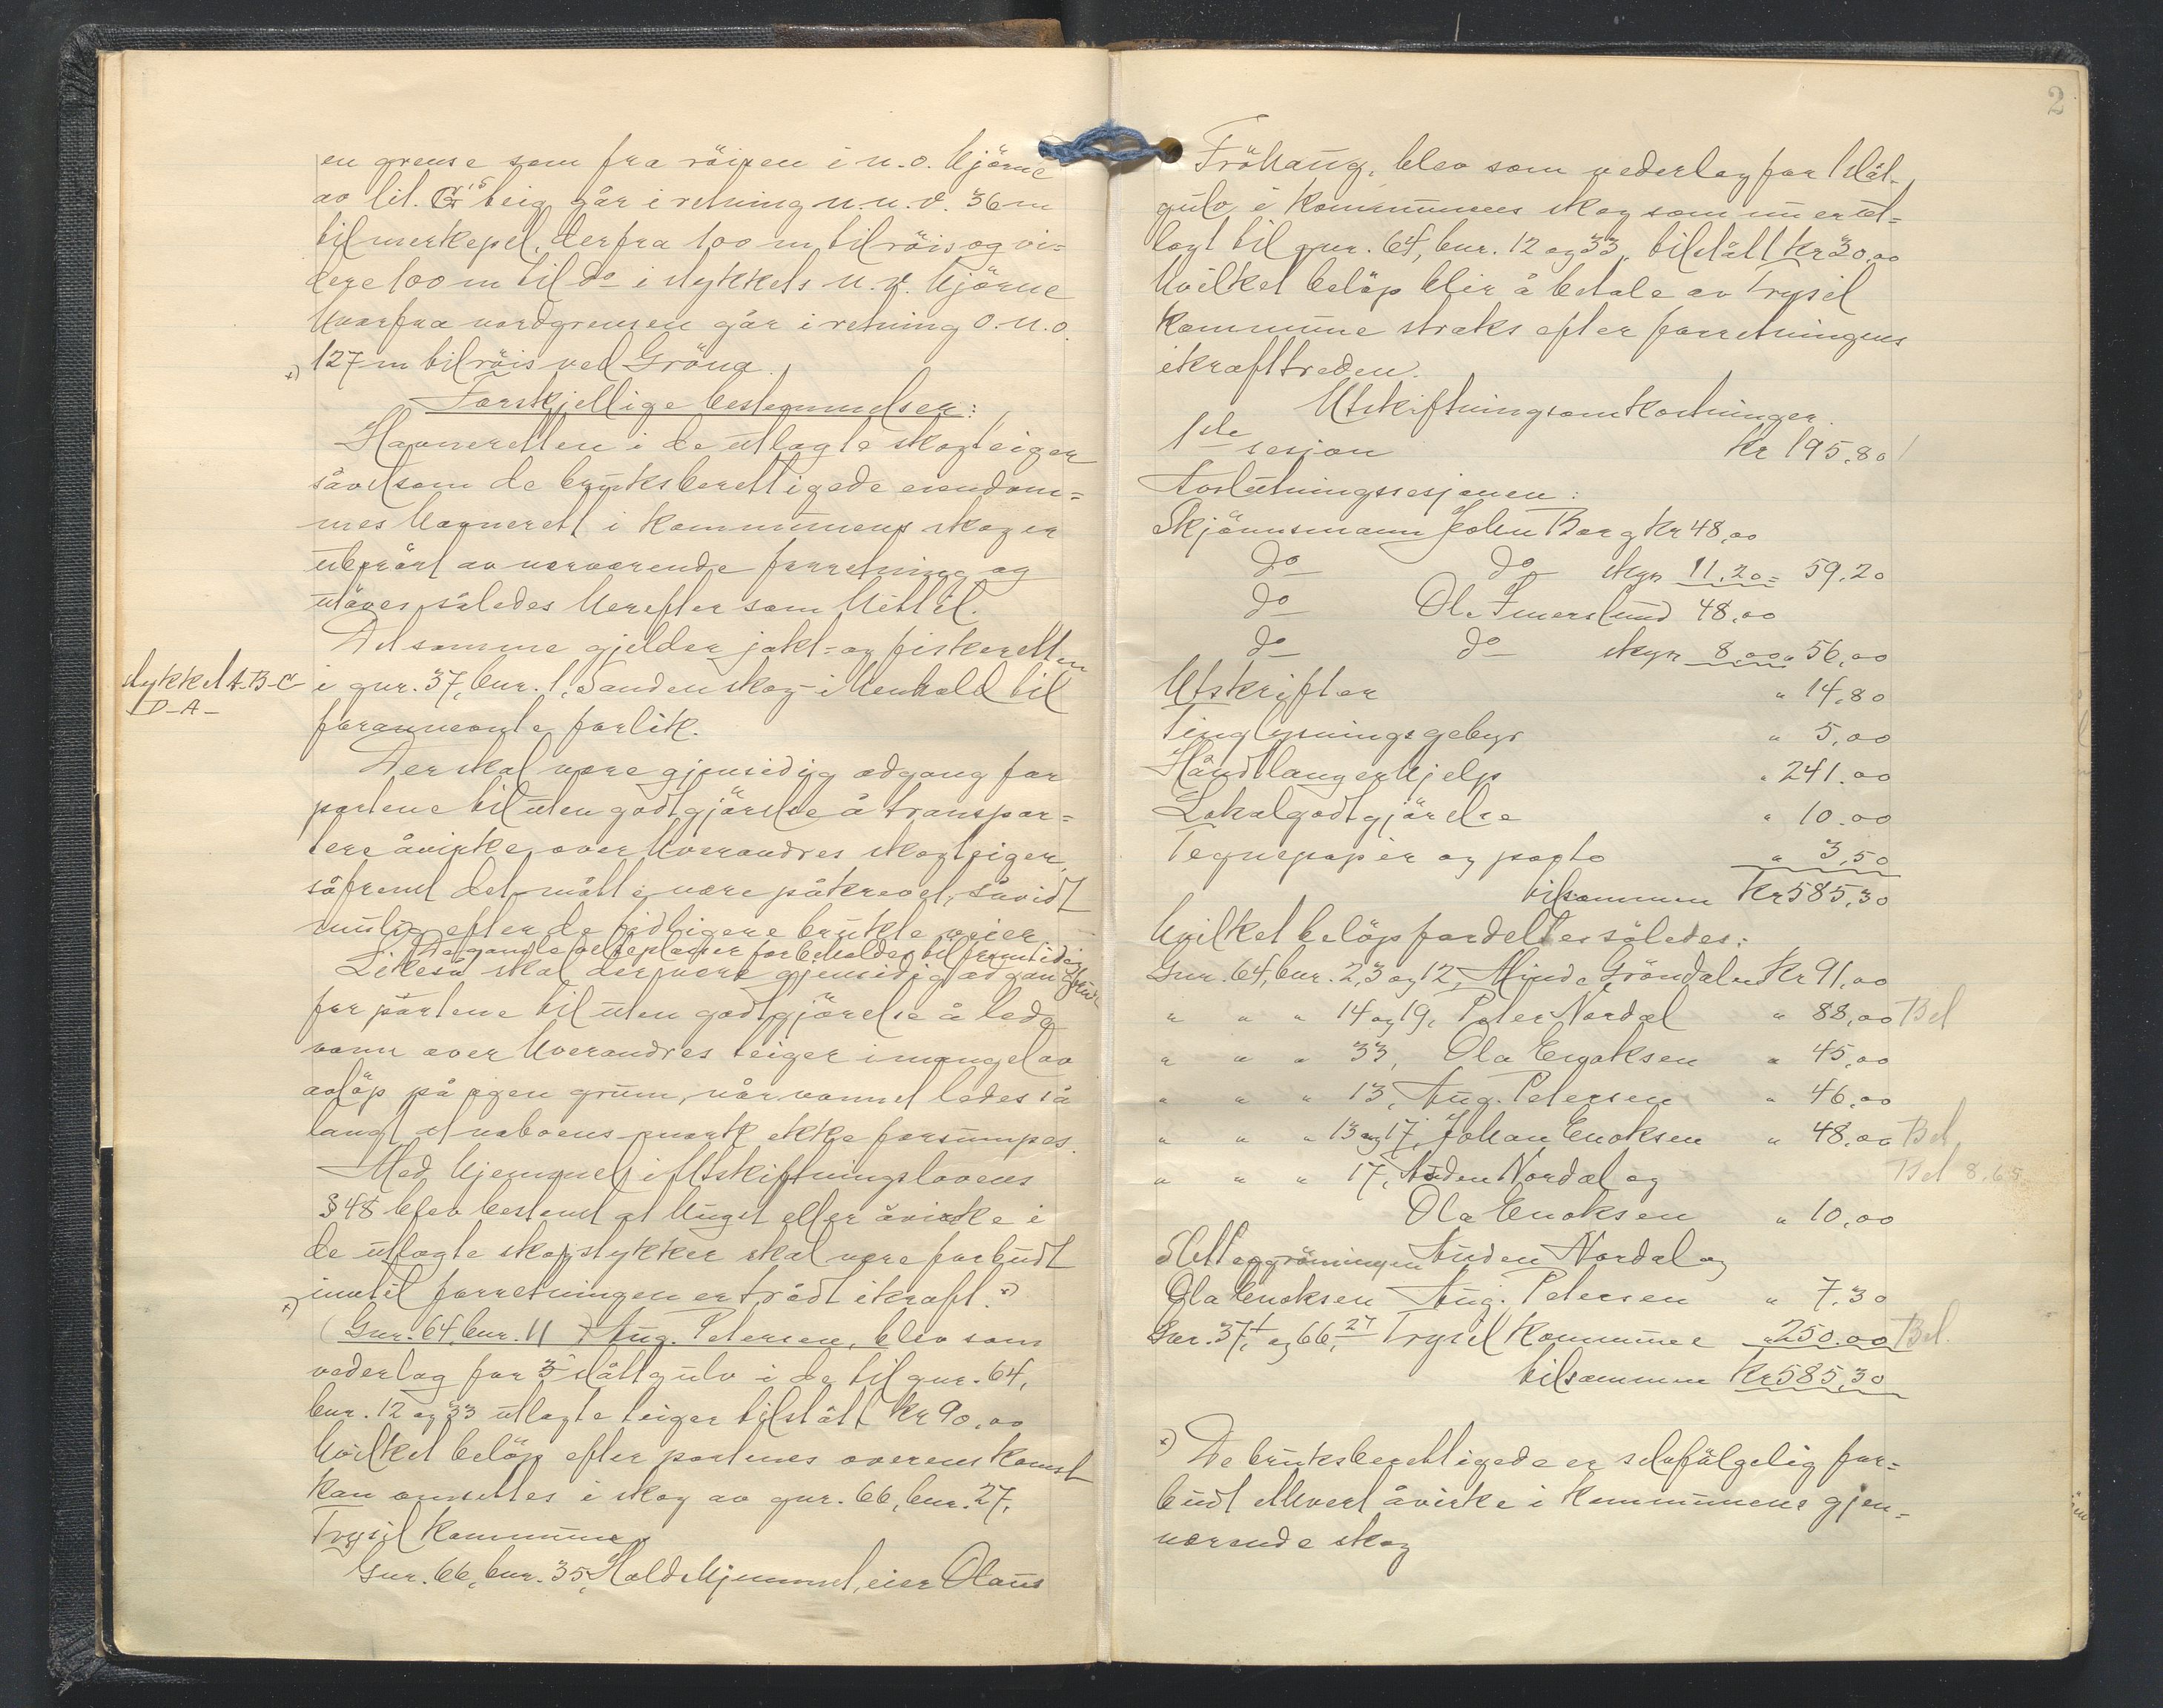 en grense som fra röisen i n.o. hjörne
av lit. G's teig går i retning n.n.v. 36 m
til merkepel, derfra 100 m til röis og vi=
dere 100 m til do i stykkets n.v. hjörne
hvorfra nordgrensen går i retning o.n.o.
x) 127 m til röis ved Gröna.
Forskjellige bestemmelser:
Havneretten i de utlagte skogteiger
såvelsom de bruksberettigede eiendom=
mes havnerett i kommunens skog er
uberört av nærværende forretning og
utöves således herefter som hittil.
Det samme gjelder jakt- og fiskeretten
stykket A-B-C
-D-A-
i gnr. 37, bnr. 1, Sanden skog i henhold til
forannevnte forlik.
Der skal være gjensidig adgang for
partene til uten godtgjörelse å transpor=
tere åvirke over hverandres skogteiger,
såfremt det måtte være påkrevet, såvidt
mulig efter de tidligere brukte veier
De gamle velteplasser forbeholdes til fremtidig bruk
Likeså skal der være gjensidig adgang
for partene til uten godtgjörelse å lede
vann over hverandres teiger i mangel av
avlöp på egen grunn, når vannet ledes så
langt at naboens mark ikke forsumpes.
Med hjemmel i Utskiftningslovens
§ 48 blev bestemt at hugst eller åvirke i
de utlagte skogstykker skal være forbudt
inntil forretningen er trådt i kraft. x)
x)
(Gnr. 64, bnr. 11) Aug. Petersen, blev som
vederlag for 3 slåttgulv i de til gnr. 64,
bnr. 12 og 33 utlagte teiger tilstått kr 90,00
hvilket belöp efter partenes overenskomst
kan ansettes i skog av gnr. 66, bnr. 27,
Trysil kommune
Gnr. 66, bnr. 35, Holdthjemmet, eier Olaus
2
Fröhaug, blev som vederlag for 1 slåt-
gulv i kommunens skog som nu er ut=
lagt til gnr. 64, bnr. 12 og 33, tilstått kr 30,00
hvilket belöp blir å betale av Trysil
kommune straks efter forretningens
ikrafttreden.
Utskiftningsomkostninger.
1ste sesjon kr 195,80
Avslutningssesjonen:
Skjönnsmann John Borg kr 48,00
do do skyss 11,20 = 59,20
do Ole Imerslund 48,00
do do skyss 8,00 " 56,00
Utskrifter " 14,80
Tinglysningsgebyr " 5,00
Håndlangerhjelp " 241,00
Lokalgodtgjörelse " 10,00
Tegnepapir og porto " 3,50
tilsammen kr 585,30
hvilket belöp fordeltes således:
Gnr. 64, bnr. 2, 3 og 12, Minda Gröndalen kr 91,00
" " " 14 og 19, Peter Nordal " 88,00 Bet
" " " 33, Ola Enoksen " 45,00
" " " 13, Aug. Petersen " 46,00
" " " 13 og 17, Johan Enoksen " 48,00 Bet.
" " " 17, Auden Nordal og Bet 8,65
Ola Enoksen " 10,00
Auden Nordal og
Ola Enoksen Aug. Petersen " 7,30
Gnr. 37,1 og 66,27 Trysil kommune " 250,00 Bet.
tilsammen kr 585,30
x) De bruksberettigede er selvfölgelig for=
budt ethvert åvirke i kommunens gjen=
værende skog